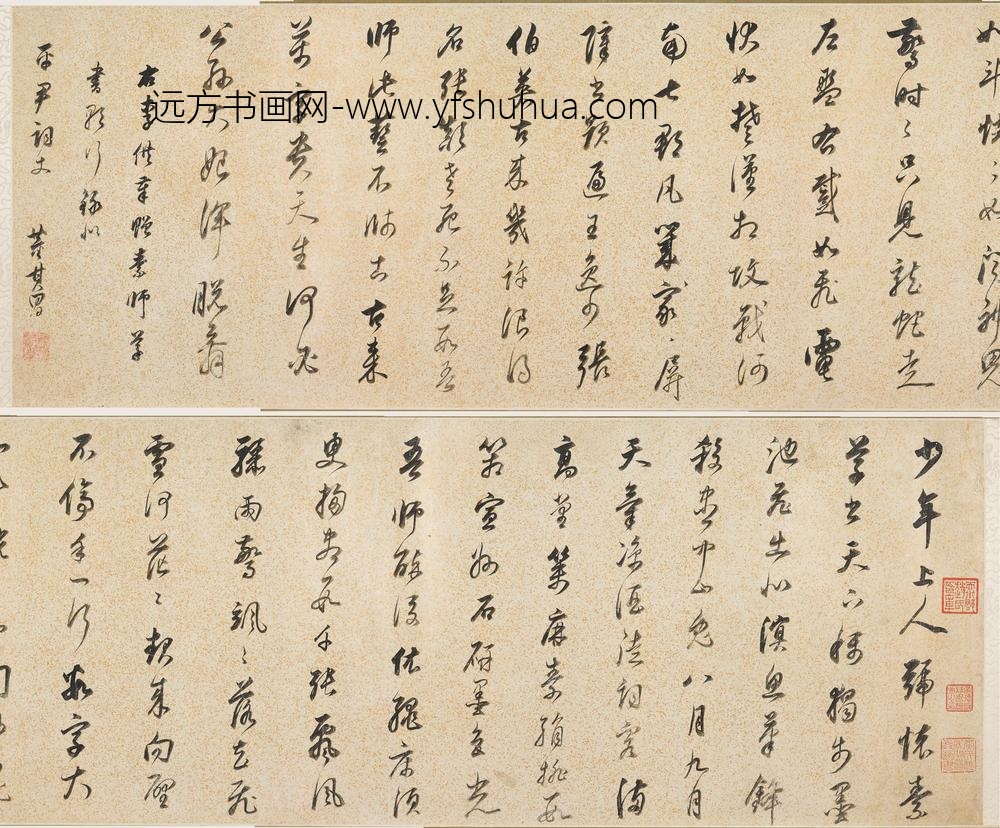 少年上人號懷素
草書天下稱獨步墨
池飛出北溟魚筆鋒
殺盡中山兔八月九月
天氣涼酒徒詞客滿
高堂箋麻素絹排數
箱宣州石硯墨色光
吾師醉後倚繩床須
臾掃盡數千張飄風
驟雨驚颯々落花飛
雪何茫々起來向壁
不停手一行數字大
如斗怳々如聞神鬼
驚時々只見龍蛇走
左盤右蹙如飛電
狀如楚漢相攻戰湖
南七郡凡幾家々屏
障書題遍王逸少張
伯英古來幾許浪得
名張顛老死不足數吾
師此不師古古來
萬事貴天生何必
公孫大娘渾脫舞
右李供奉贈素師草
書歌行錄似
平尹詞丈 董其昌
远方书画网-www.yfshuhua.com